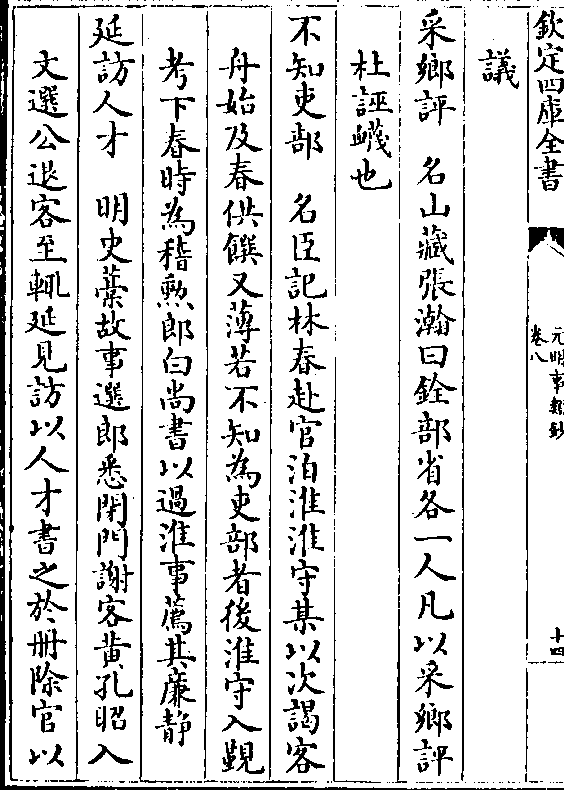 欽定四庫全書
元明事類鈔
卷八
十四
議
采鄉評　名山藏張瀚曰銓部省各一人凡以采鄉評
杜誣衊也
不知吏部　名臣記林春赴官泊淮淮守某以次謁客
舟始及春供饌又薄若不知為吏部者後淮守入覲
考下春時為稽勲郎白尚書以過淮事薦其廉静
延訪人才　明史藁故事選郎悉閉門謝客黄孔昭入
文選公退客至輒延見訪以人才書之於册除官以